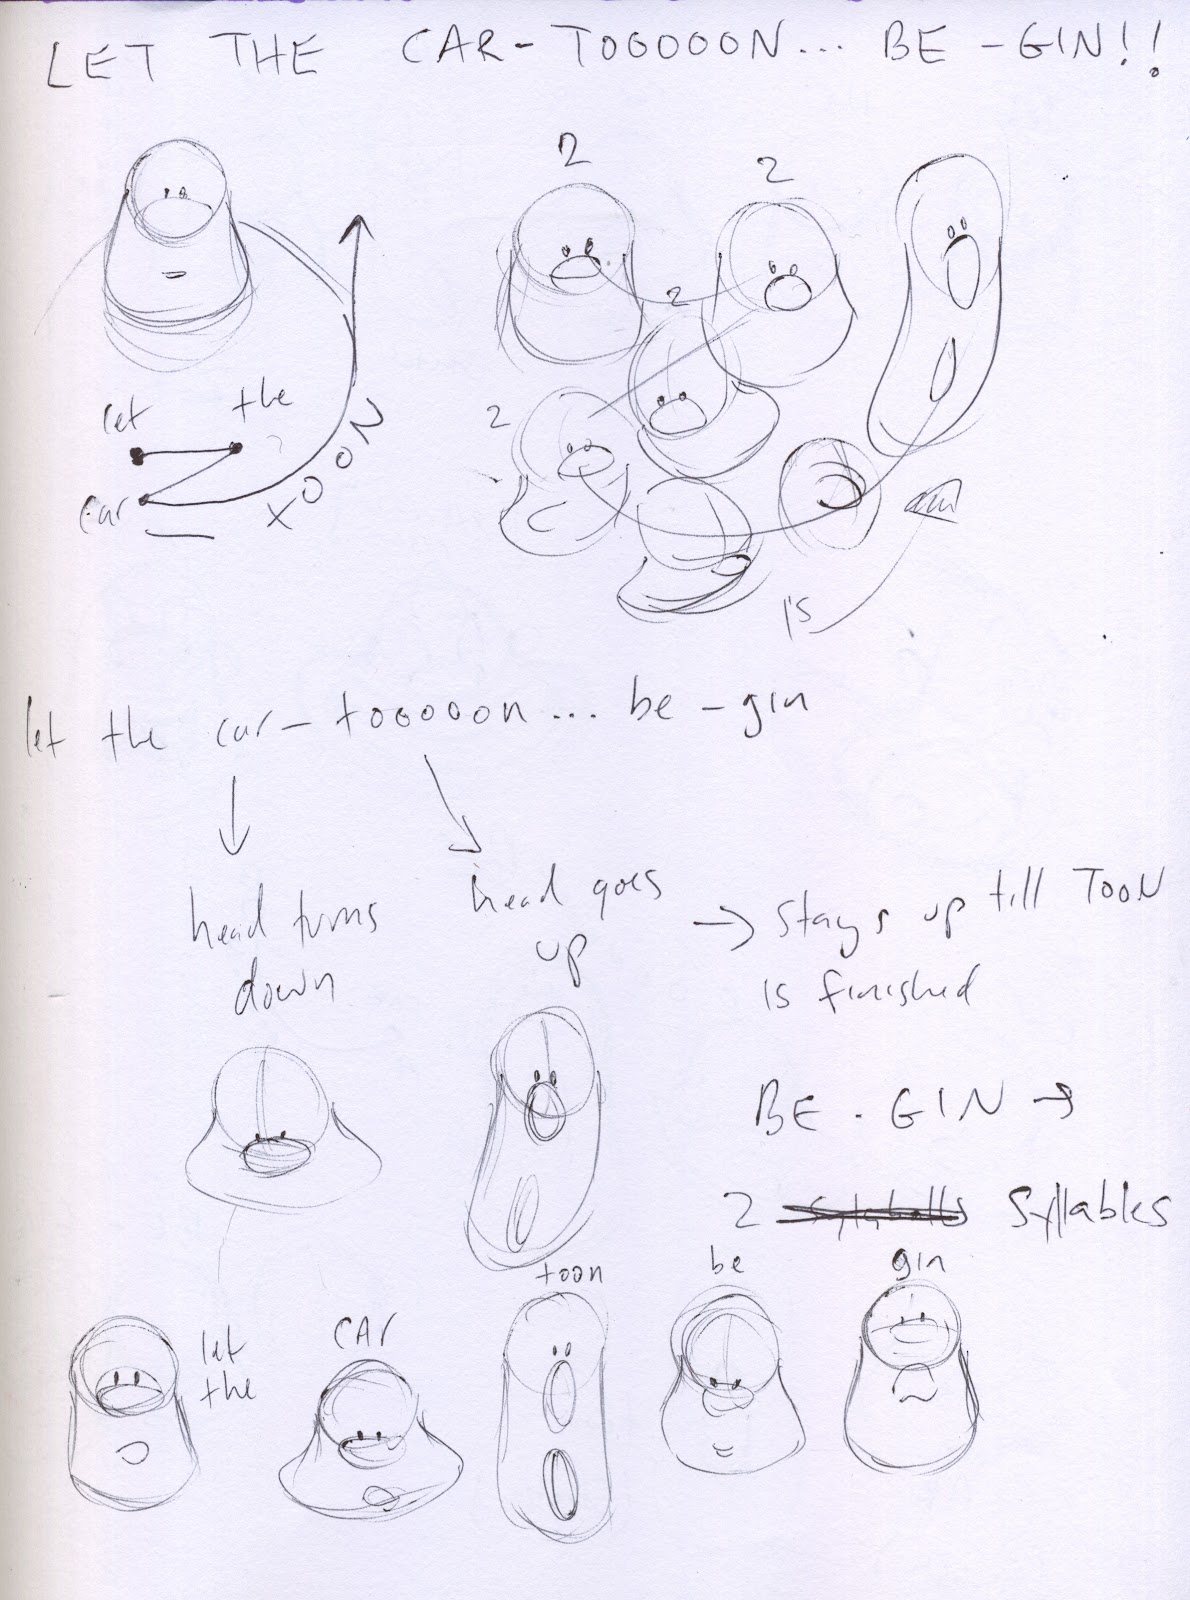 LET THE CAR-TOOOOON... BE-GIN!!
2
2
2
2
let the
car
TOON
1's
let the car-tooooon... be-gin
head turns
down
head goes
up
→ stays up till TOON
is finished
BE-GIN →
2 syllables
toon
be
gin
let
the
CAR